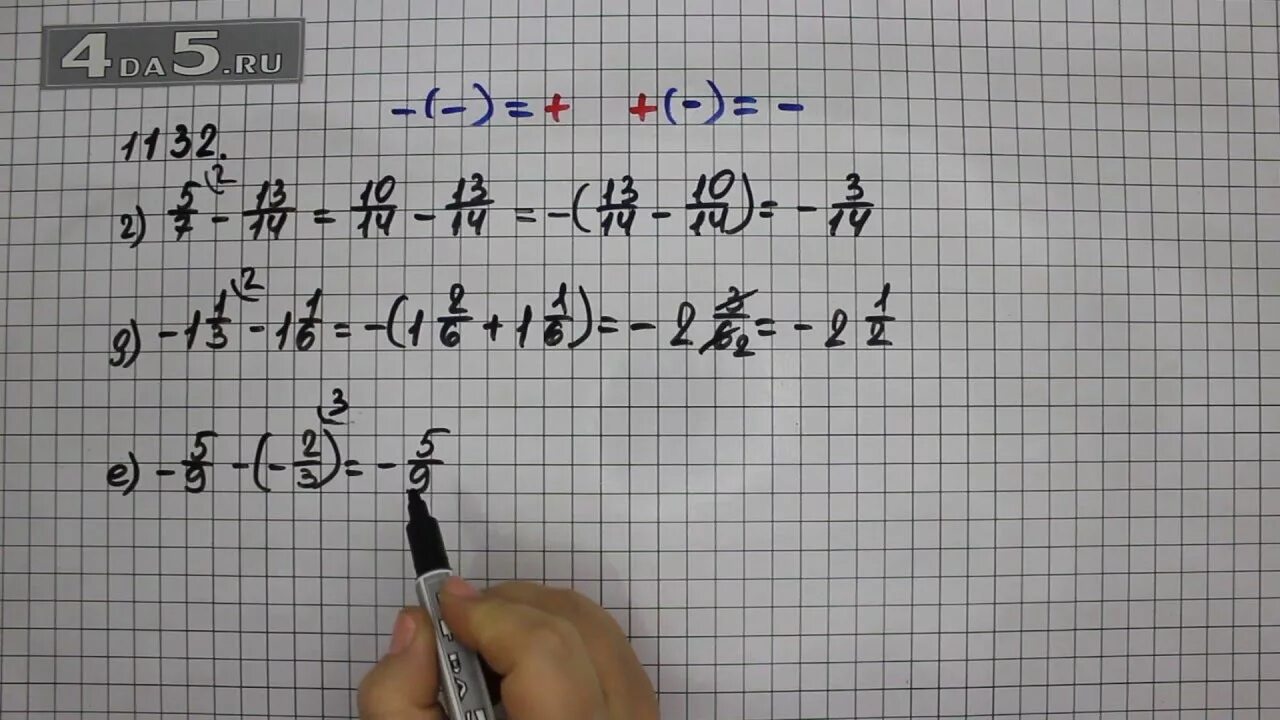 4DA5.RU
-(-)=+ +(-)= -
1132.
г) 5/7 - 13/14 = 10/14 - 13/14 = -(13/14 - 10/14) = - 3/14
2
д) -1 1/3 - 1 1/6 = -(1 2/6 + 1 1/6) = - 2 3/6 2 = - 2 1/2
2
е) - 5/9 - (- 2/3) = - 5/9
3
DA